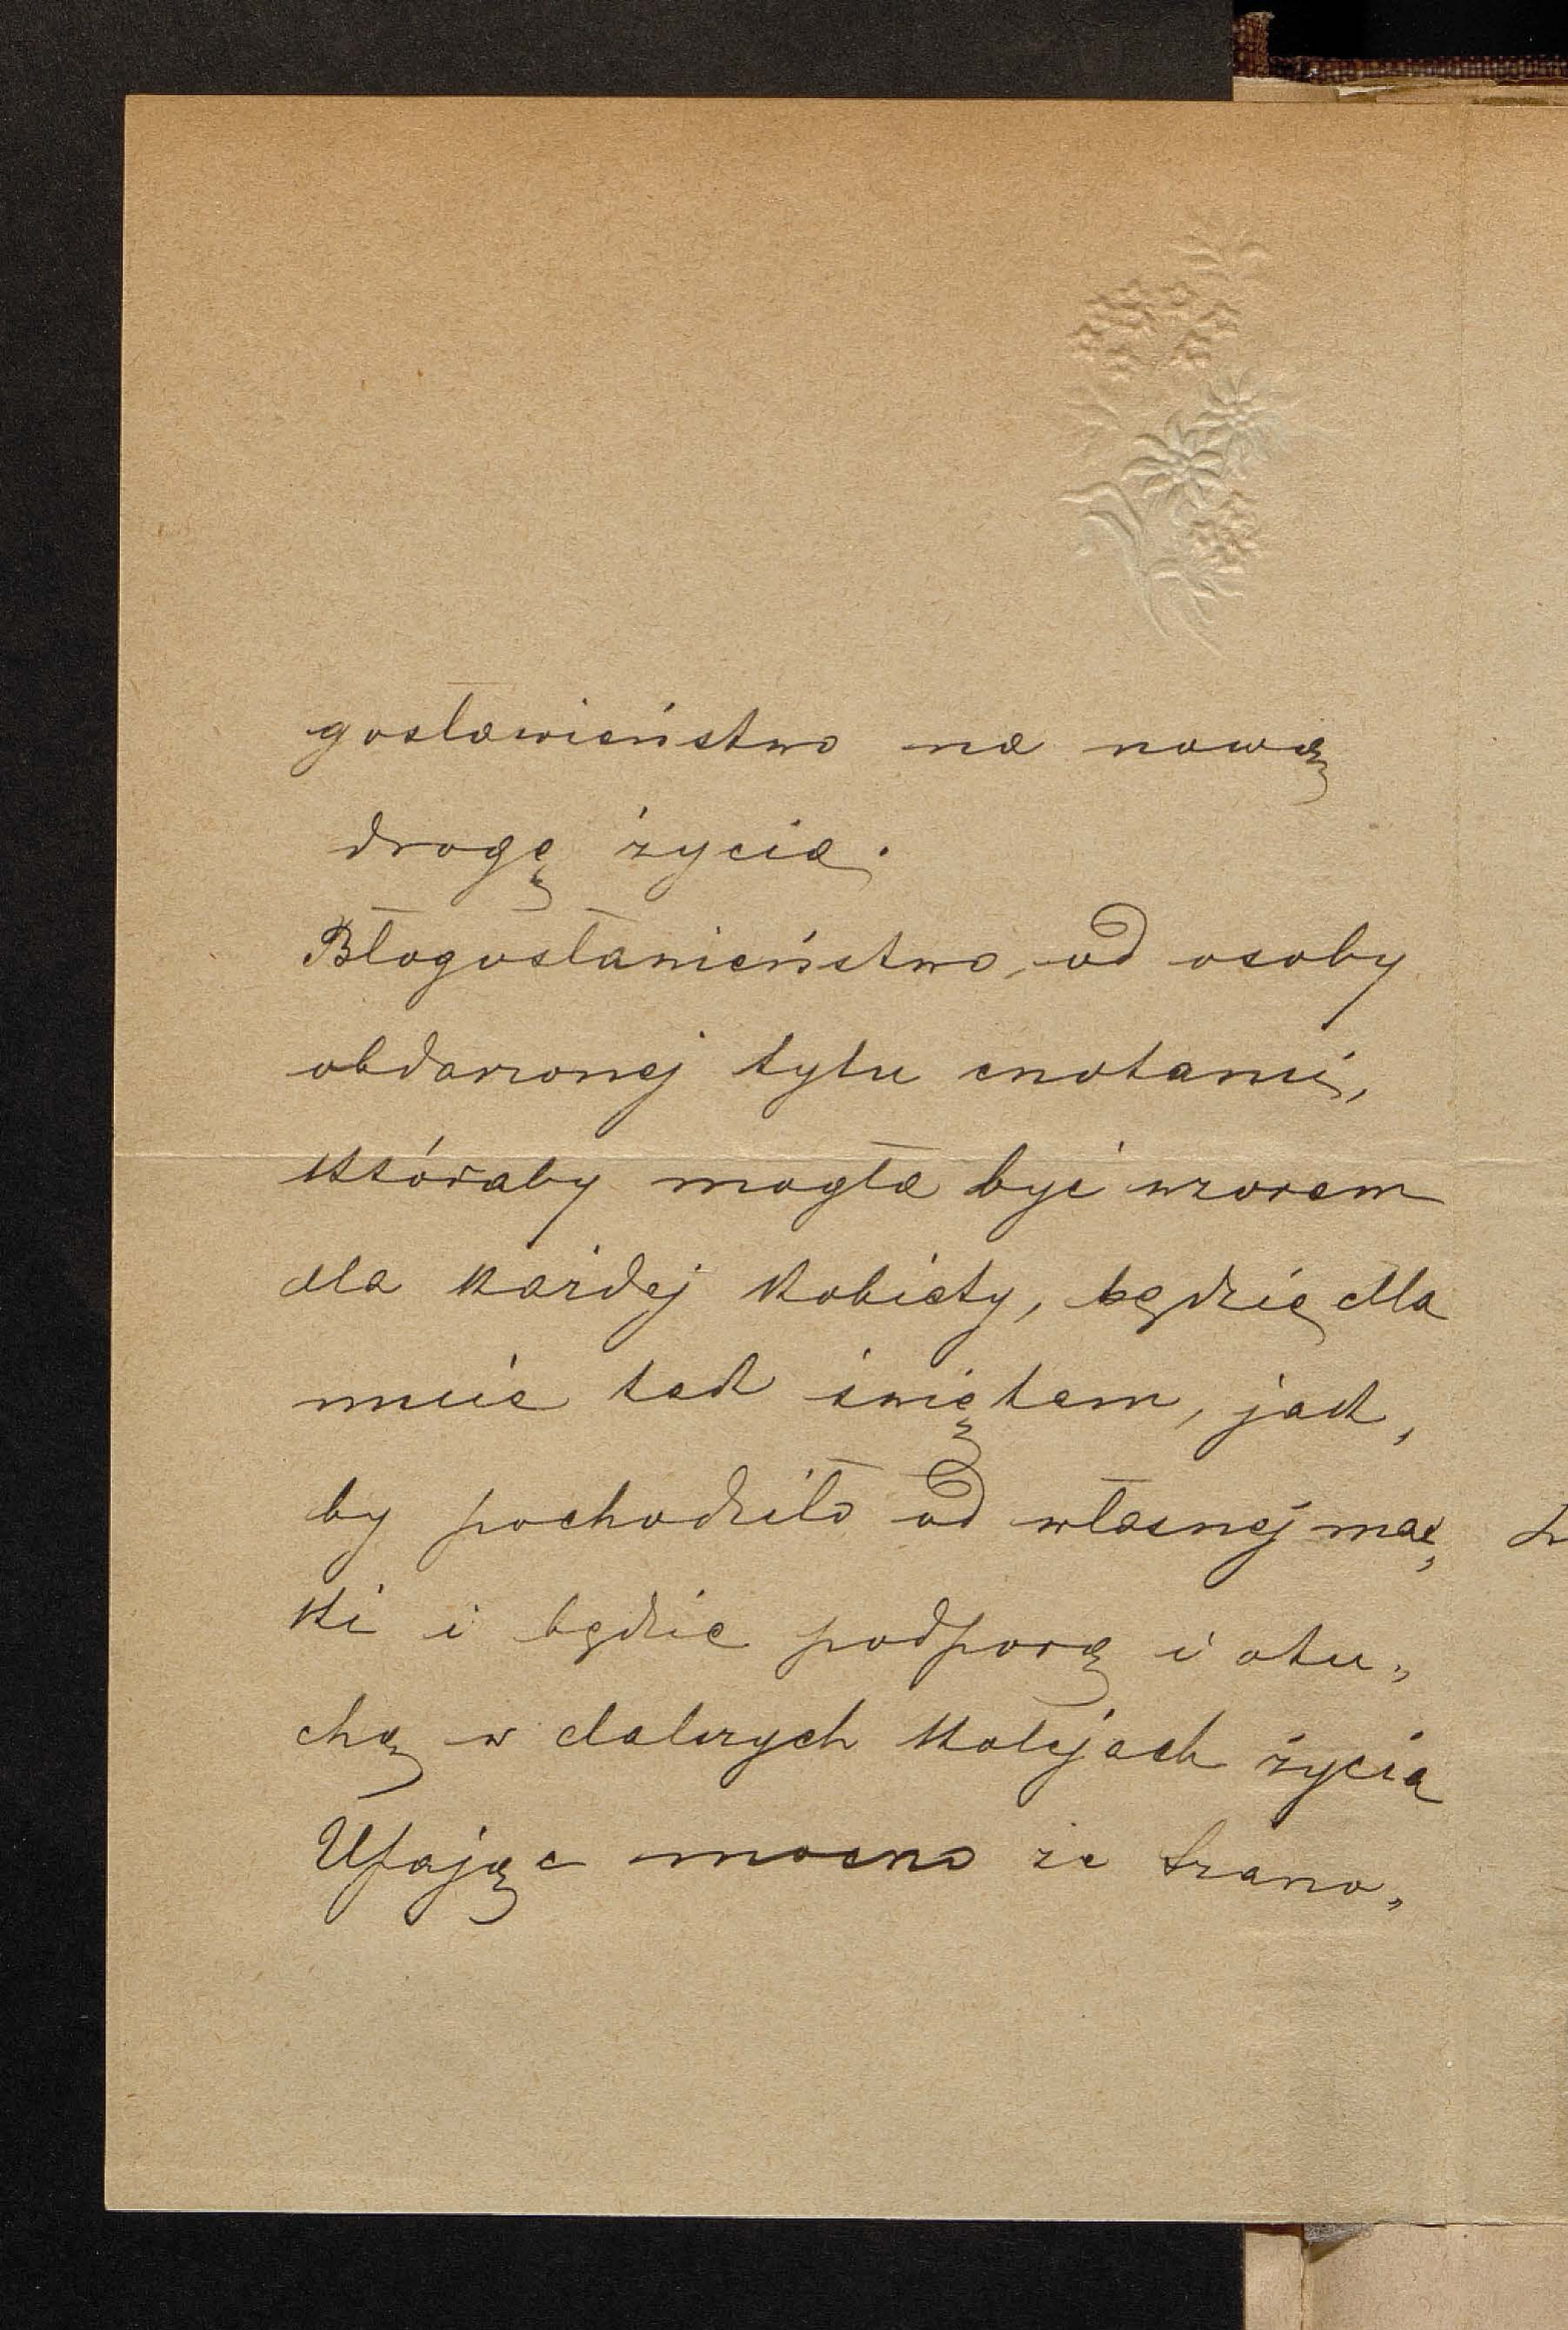 gosławieństwo na nową
drogę życia.
Błogosławieństwo, od osoby
obdarzonej tylu cnotami,
któraby mogła być wzorem
dla każdej kobiety, będzie dla
mnie tak świętem, jak„
by pochodziło od własnej mat„
ki i będzie podporą i otu„
chą w dalszych kolejach życia
Ufając mocno że Szano„